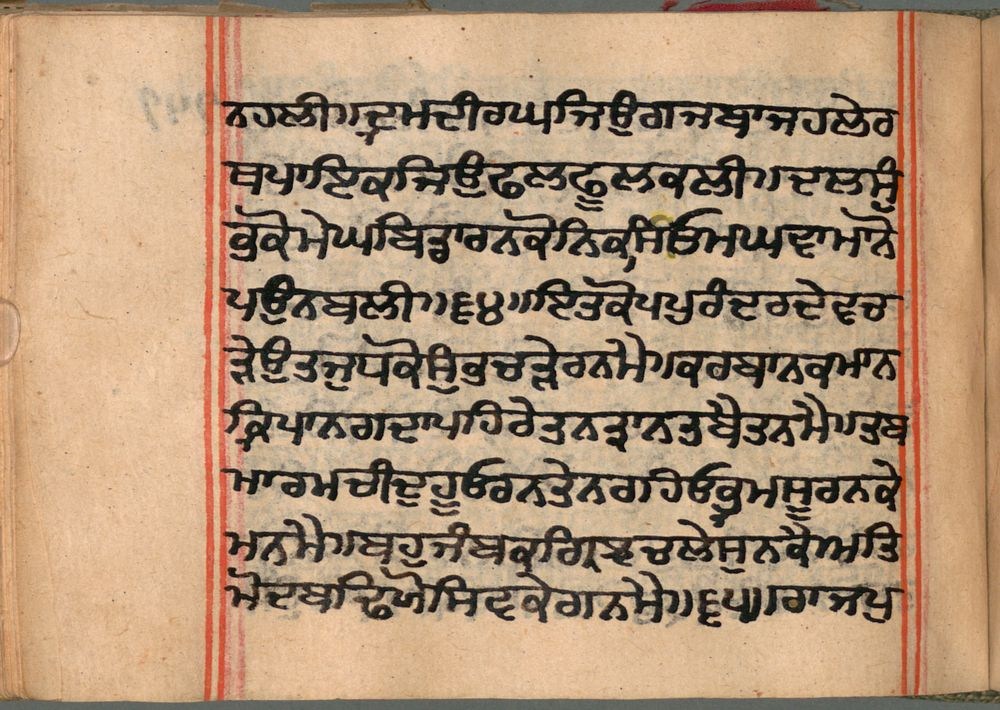 ਨਹਲੀ॥ਦ੍ਰੁਮਦੀਰਘਜਿਉਗਜਬਾਜਹਲੇਰ
ਥਪਾਇਕਜਿਉਫਲਫੂਲਕਲੀ॥ਦਲਸ੍ਯੰ
ਕੁੱਕੋਮੇਘਬਿਡਾਰਨਕੋਨਿਕਸਿਓਮਘਵਾਮਾਨੋ
ਪਉਨਬਲੀ॥੬੪॥ਇਤਕੋਪਪੁਰੰਦਰਦੇਵਚ
ੜੇਉਤਜੁਧਕੋਸੁੰਭਚੜੇਰਨਮੈ॥ਕਰਬਾਨਕਮਾਨ
ਕ੍ਰਿਪਾਨਗਦਾਪਹਿਰੇਤਨਤ੍ਰਾਨਤਬੈਤਨਮੈ॥ਤਬ
ਮਾਰਮਚੀਦੁਹੂਓਰਨਤੇਨਰਹਿਓਭ੍ਰਮਸੂਰਨਕੇ
ਮਨਮੈ॥ਬਹੁਜੰਬਕਗ੍ਰਿਝਚਲੇਸੁਨਕੈਅਤਿ
ਮੋਦਬਢਿਯੋਸਿਵਕੇਗਨਮੈ॥੬੫॥ਰਾਜਪੁ